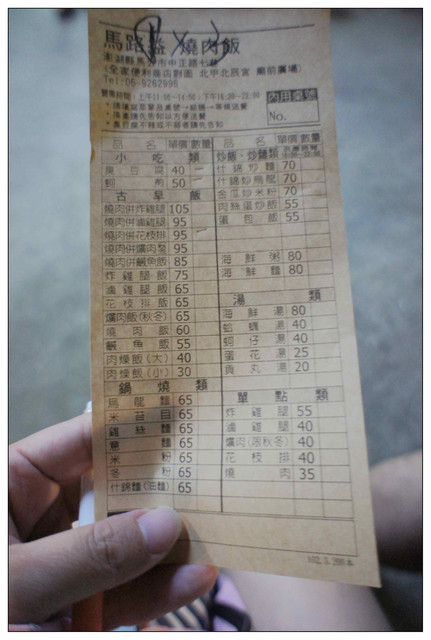 馬路益燒肉飯
澎湖縣馬公市中正路七巷
(全家便利商店對面 北甲北辰宮 廟前廣場)
Tel:06-9262996
內用桌號
No.
品 名 單價 數量
小 吃 類
臭豆腐 40
蚵煎 50
古早飯
燒肉併炸雞腿 105
燒肉併滷雞腿 95
燒肉併花枝排 95
燒肉併爌肉 95
燒肉併虱魚飯 85
炸雞腿飯 75
滷雞腿飯 65
花枝排飯 65
爌肉飯(秋冬) 65
燒肉飯 60
魚飯 55
肉燥飯(大) 40
肉燥飯(小) 30
鍋燒類
烏龍麵 65
米苔目 65
雞絲麵 65
意麵 65
米粉 65
冬粉 65
什錦麵(油麵) 65
品 名 單價 數量
炒飯、炒麵類
什錦炒麵 70
什錦炒烏龍 70
金瓜炒米粉 70
肉絲蛋炒飯 55
蛋包飯 55
海鮮粥 80
海鮮麵 80
湯類
海鮮湯 80
蛤蠣湯 40
蚵仔湯 40
蛋花湯 25
貢丸湯 20
單點類
炸雞腿 55
滷雞腿 40
爌肉(限秋冬) 40
花枝排 40
燒肉 35